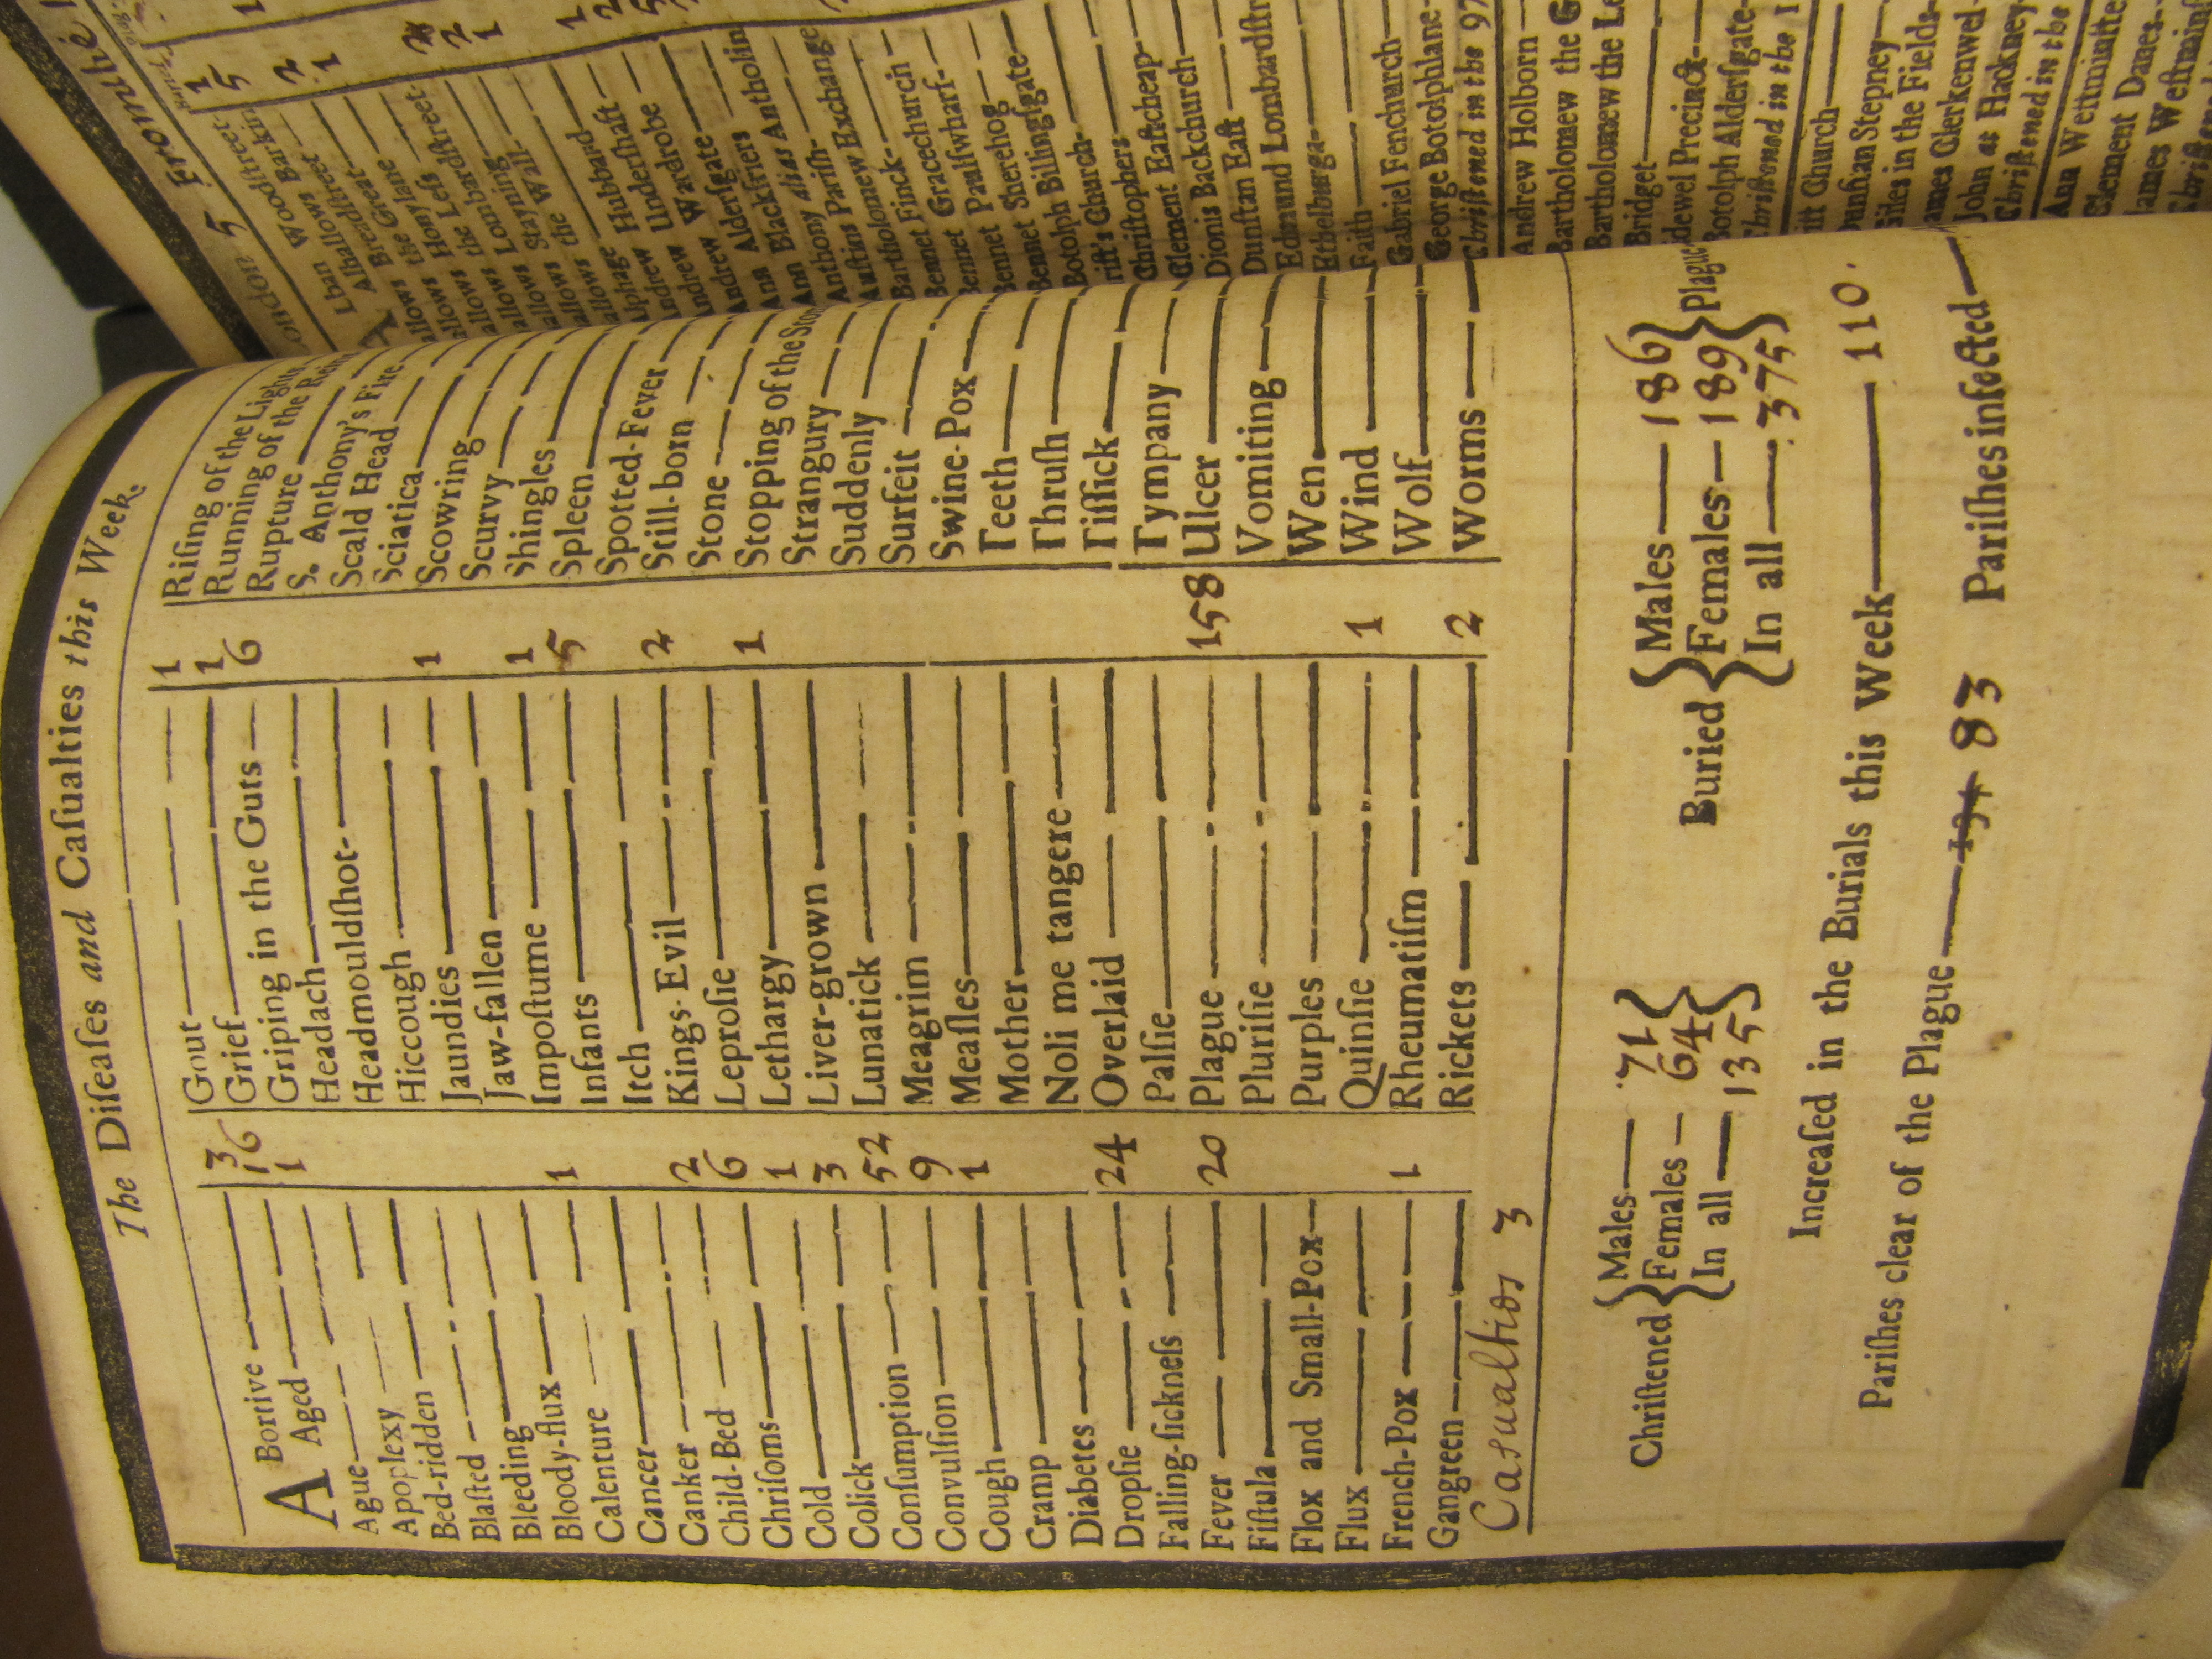 The Diſeaſes and Caſualties this Week.
ABortive 3
Aged 16
Ague 1
Apoplexy
Bed-ridden
Blaſted
Bleeding
Bloody-flux
Calenture 1
Cancer
Canker
Child-Bed 2
Chriſoms 6
Cold 1
Colick 3
Conſumption 52
Convulſion 9
Cough 1
Cramp
Diabetes
Dropſie 24
Falling-ſickneſs
Fever 20
Fiſtula
Flox and Small-Pox
Flux
French-Pox 1
Gangreen
Casualties 3
Gout 1
Grief 1
Griping in the Guts 6
Headach
Headmouldſhot
Hiccough
Jaundies 1
Jaw-fallen
Impoſtume 1
Infants 5
Itch
Kings-Evil 2
Leproſie
Lethargy 1
Liver-grown
Lunatick
Meagrim
Meaſles
Mother
Noli me tangere
Overlaid
Palſie
Plague 158
Pluriſie
Purples
Quinſie 1
Rheumatiſm
Rickets 2
Riſing of the Lights
Running of the Rein
Rupture
S. Anthony's Fire
Scald Head
Sciatica
Scowring
Scurvy
Shingles
Spleen
Spotted-Fever
Still-born
Stone
Stopping of the Sto
Strangury
Suddenly
Surfeit
Swine-Pox
Teeth
Thruſh
Tiſſick
Tympany
Ulcer
Vomiting
Wen
Wind
Wolf
Worms
Chriſtened { Males 71 Females 64 In all 135 }
Buried { Males 186 Females 189 In all 375 } Plague
Increaſed in the Burials this Week 110
Pariſhes clear of the Plague 83 Pariſhes infected
ondon 5 From the
lban Woodſtreet 1
Alhallows Barkin 5
Breadſtreet
Great 2
allows Honylane 1
allows the Leſs
allows Lombardſtreet
allows Stayning 2
allows the Wall 1
Alphage
Andrew Hubbard 1
Andrew Underſhaft 2
Andrew Wardrobe 5
Ann Alderſgate
Ann Blackfriers
Anthony alias Antholin
Auſtins Pariſh
Bartholomew Exchange
Bennet Finck
Bennet Gracechurch
Bennet Paulſwharf
Bennet Sherehog
Botolph Billingſgate
riſt's Church
Chriſtophers
Clement Eaſtcheap
Dionis Backchurch
Dunſtan Eaſt
Edmund Lombardſtr
Ethelburga
Faith
Gabriel Fenchurch
George Botolphlane
Chriſtened in the 97
Andrew Holborn
Bartholomew the G
Bartholomew the Le
Bridget
dewel Precinct
Botolph Alderſgate
Chriſtened in the 1
iſt Church
unſtan Stepney
Giles in the Fields
ames Clerkenwel
John at Hackney
Chriſtened in the
Ann Weſtminſte
Clement Danes
ames Weſtmin